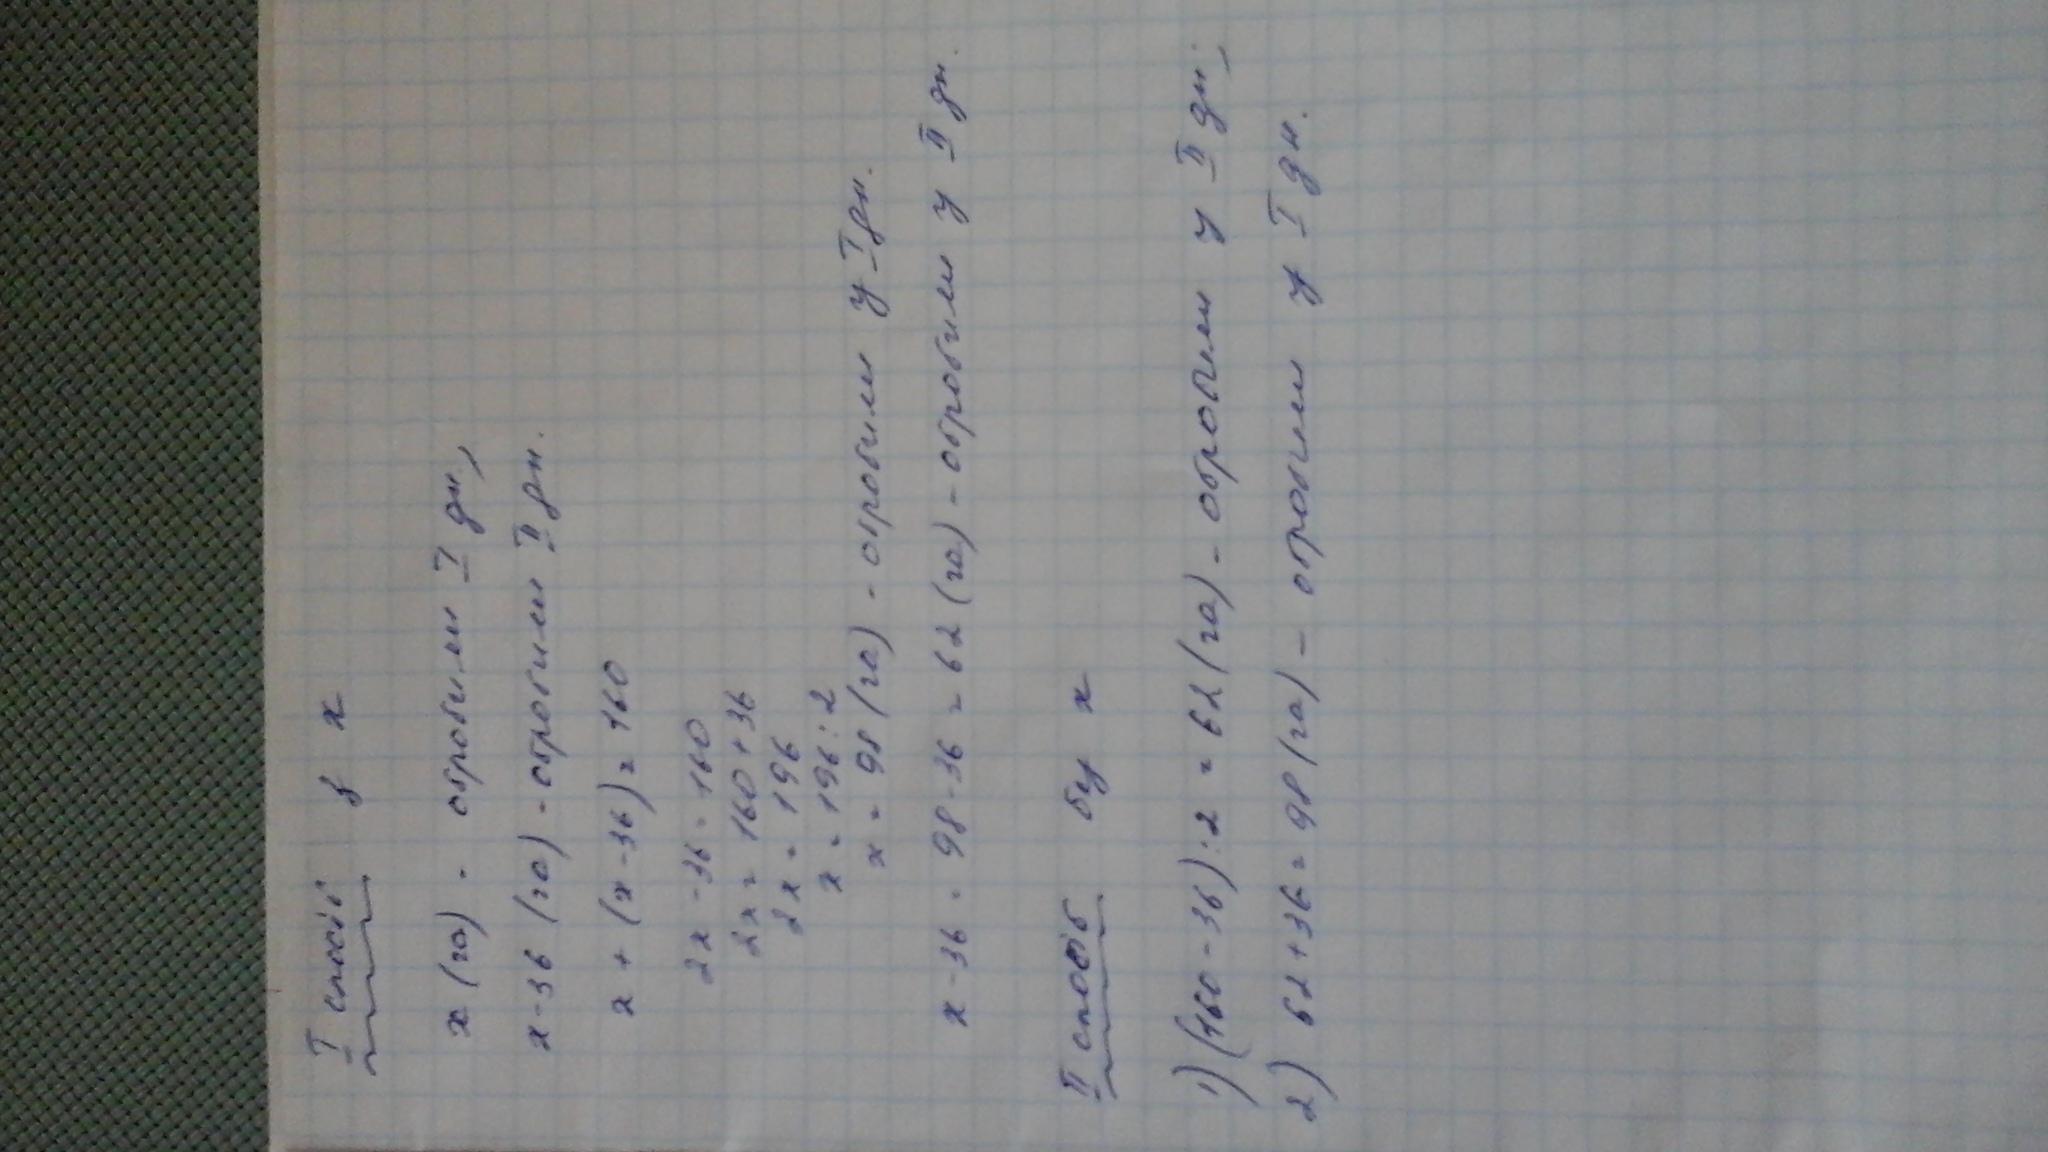 I спосіб з х
х (га) - обробили I дн,
х-36 (га) - обробили II дн.
х + (х-36) = 160
2х - 36 = 160
2х = 160 + 36
2х = 196
х = 196 : 2
х = 98 (га) - обробили у I дн.
х - 36 = 98 - 36 = 62 (га) - обробили у II дн.
II спосіб без х
1) (160 - 36) : 2 = 62 (га) - обробили у II дн;
2) 62 + 36 = 98 (га) - обробили у I дн.